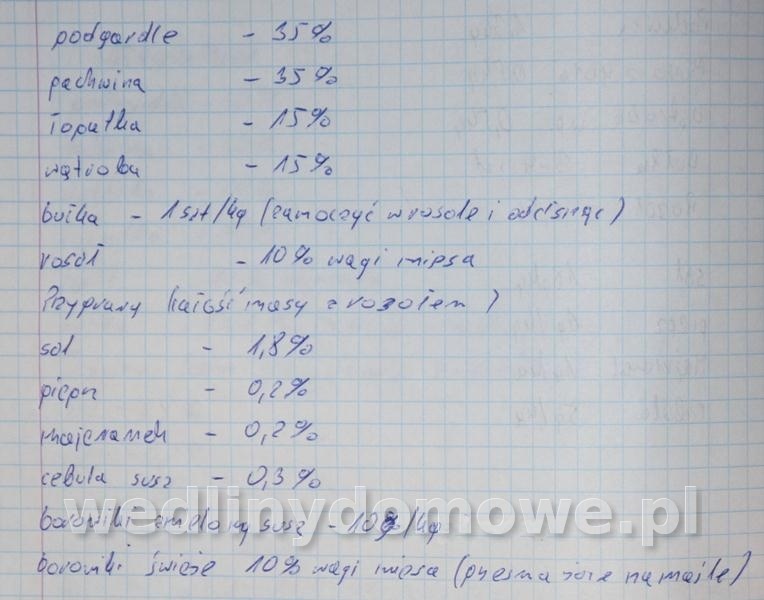 podgardle - 35%
pachwina - 35%
łopatka - 15%
wątroba - 15%
bułka - 1 szt/kg (zamoczyć w rosole i odcisnąć)
rosół - 10% wagi mięsa
Przyprawy (całość masy z rosołem)
sól - 1,8%
pieprz - 0,2%
majeranek - 0,2%
cebula susz - 0,3%
wedlinydomowe.pl
borowiki zmielony susz - 10g/kg
borowiki świeże 10% wagi mięsa (przesmażone na maśle)